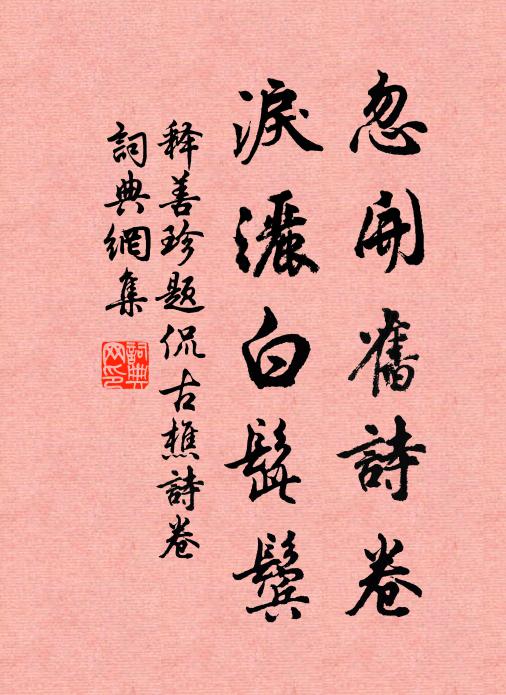 忽開舊詩卷
淚灑白髭鬢
释善珍题侃古樵詩卷
詞典網集
詞典網印